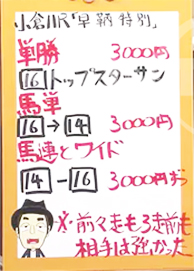 小倉11R「早鞆特別」
単勝 3000円
16トップスターサン
馬単
16→14 3000円
馬連とワイド
14-16 3000円ずつ
※前々走も3走前も
相手は強かった